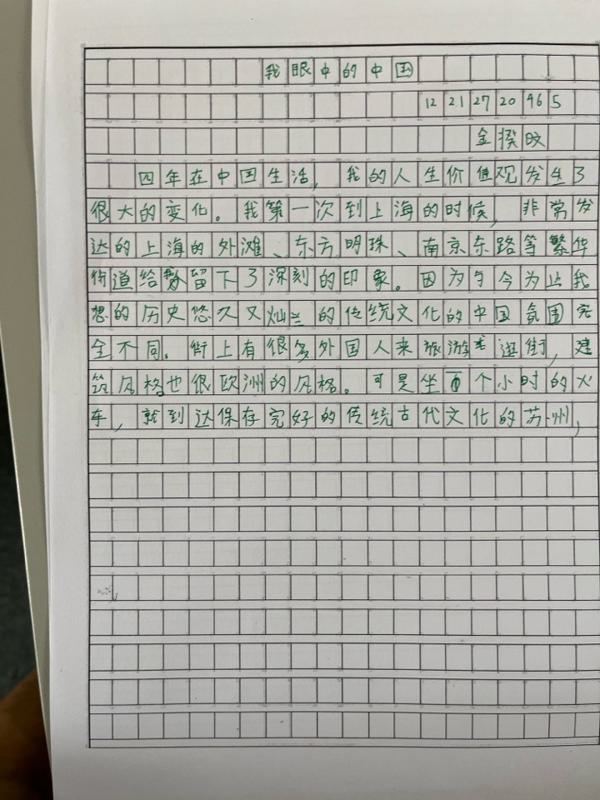 我眼中的中国
12 21 27 20 46 5
金揆旼
四年在中国生活，我的人生价值观发生了
很大的变化。我第一次到上海的时候，非常发
达的上海的外滩、东方明珠、南京东路等繁华
街道给留下了深刻的印象。因为与今为止我
想的历史悠久又灿兰的传统文化的中国氛围完
全不同。街上有很多外国人来旅游逛街，建
筑风格也很欧洲的风格。可是坐个小时的火
车，就到达保存完好的传统古代文化的苏州，